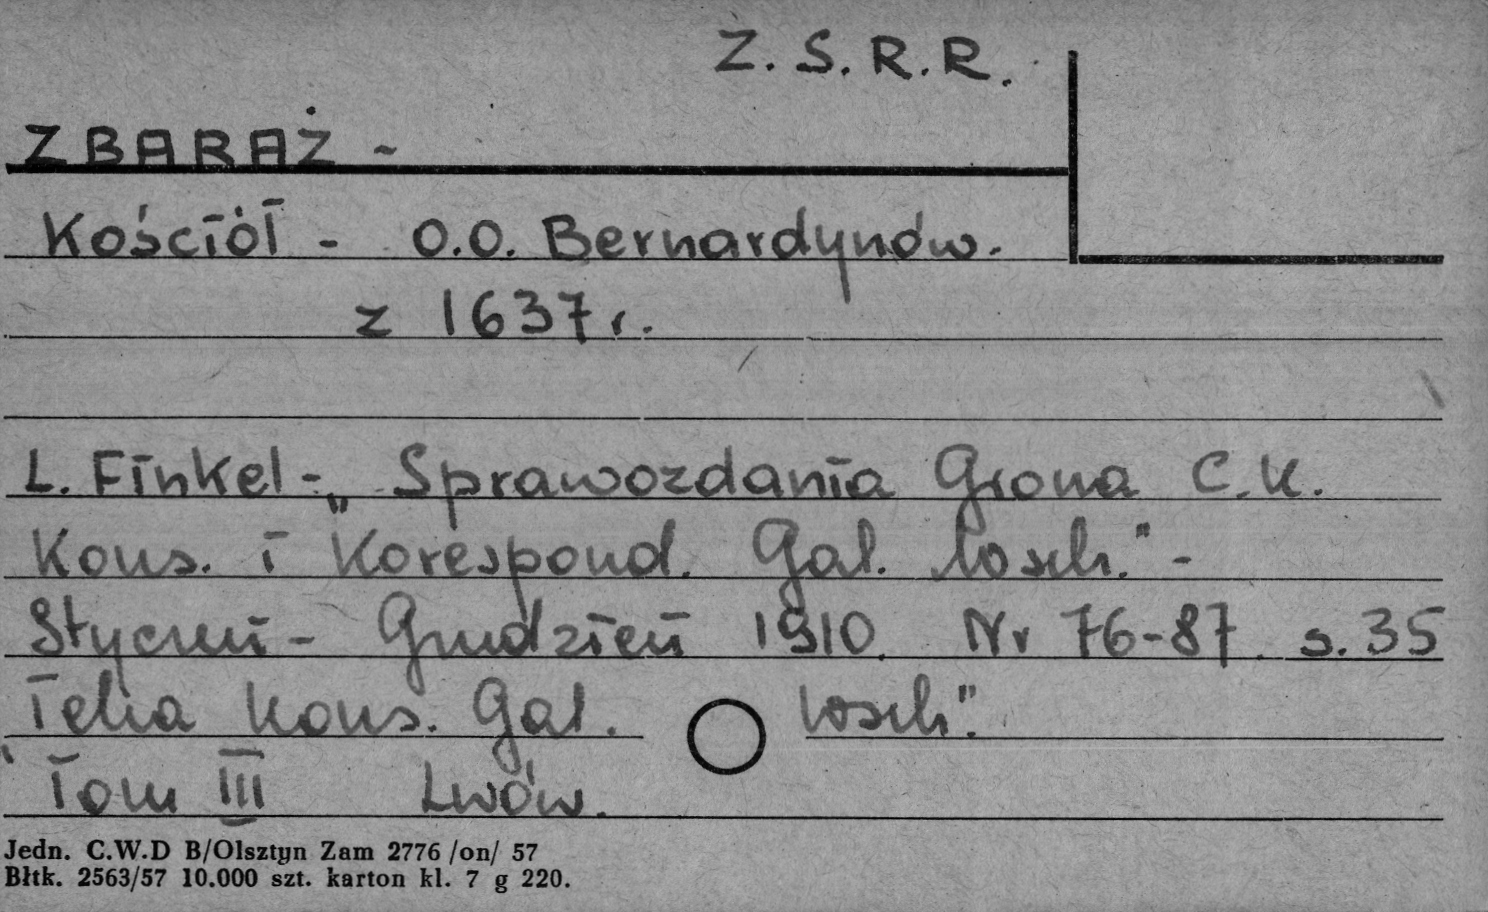 Z.S.R.R.
ZBARAŻ -
Kościół - O.O. Bernardynów.
z 1637 r.
L. Finkel - „Sprawozdania Grona C.K.
Kons. i Korespond. Gal. Wsch." -
Styczeń - Grudzień 1910. Nr 76-87. s. 35
Teka Kons. Gal. Wsch".
Tom III Lwów.
Jedn. C.W.D B/Olsztyn Zam 2776 /on/ 57
Błtk. 2563/57 10.000 szt. karton kl. 7 g 220.